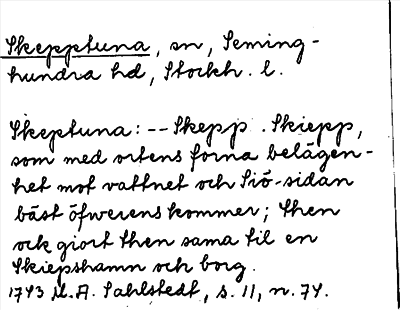 Skepptuna, sn, Seming-
hundra hd, Stockh. l.
Skeptuna: -- Skepp. Skiepp,
som med ortens forna belägen-
het mot vattnet och Siö-sidan
bäst öfwerenskommer; then
ock giort then sama til en
Skiepshamn och borg.
1743 U.A. Sahlstedt, s. 11, n. 74.